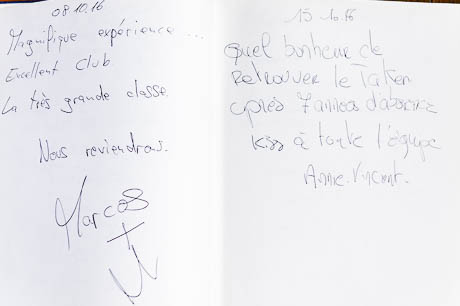 08.10.16
Magnifique expérience...
Excellent club
La très grande classe.
Nous reviendrons.
Marcos
15 10.16
Quel bonheur de
Retrouver le
après 7 années d'absence
à toute l'équipe
Annie. Vincent.